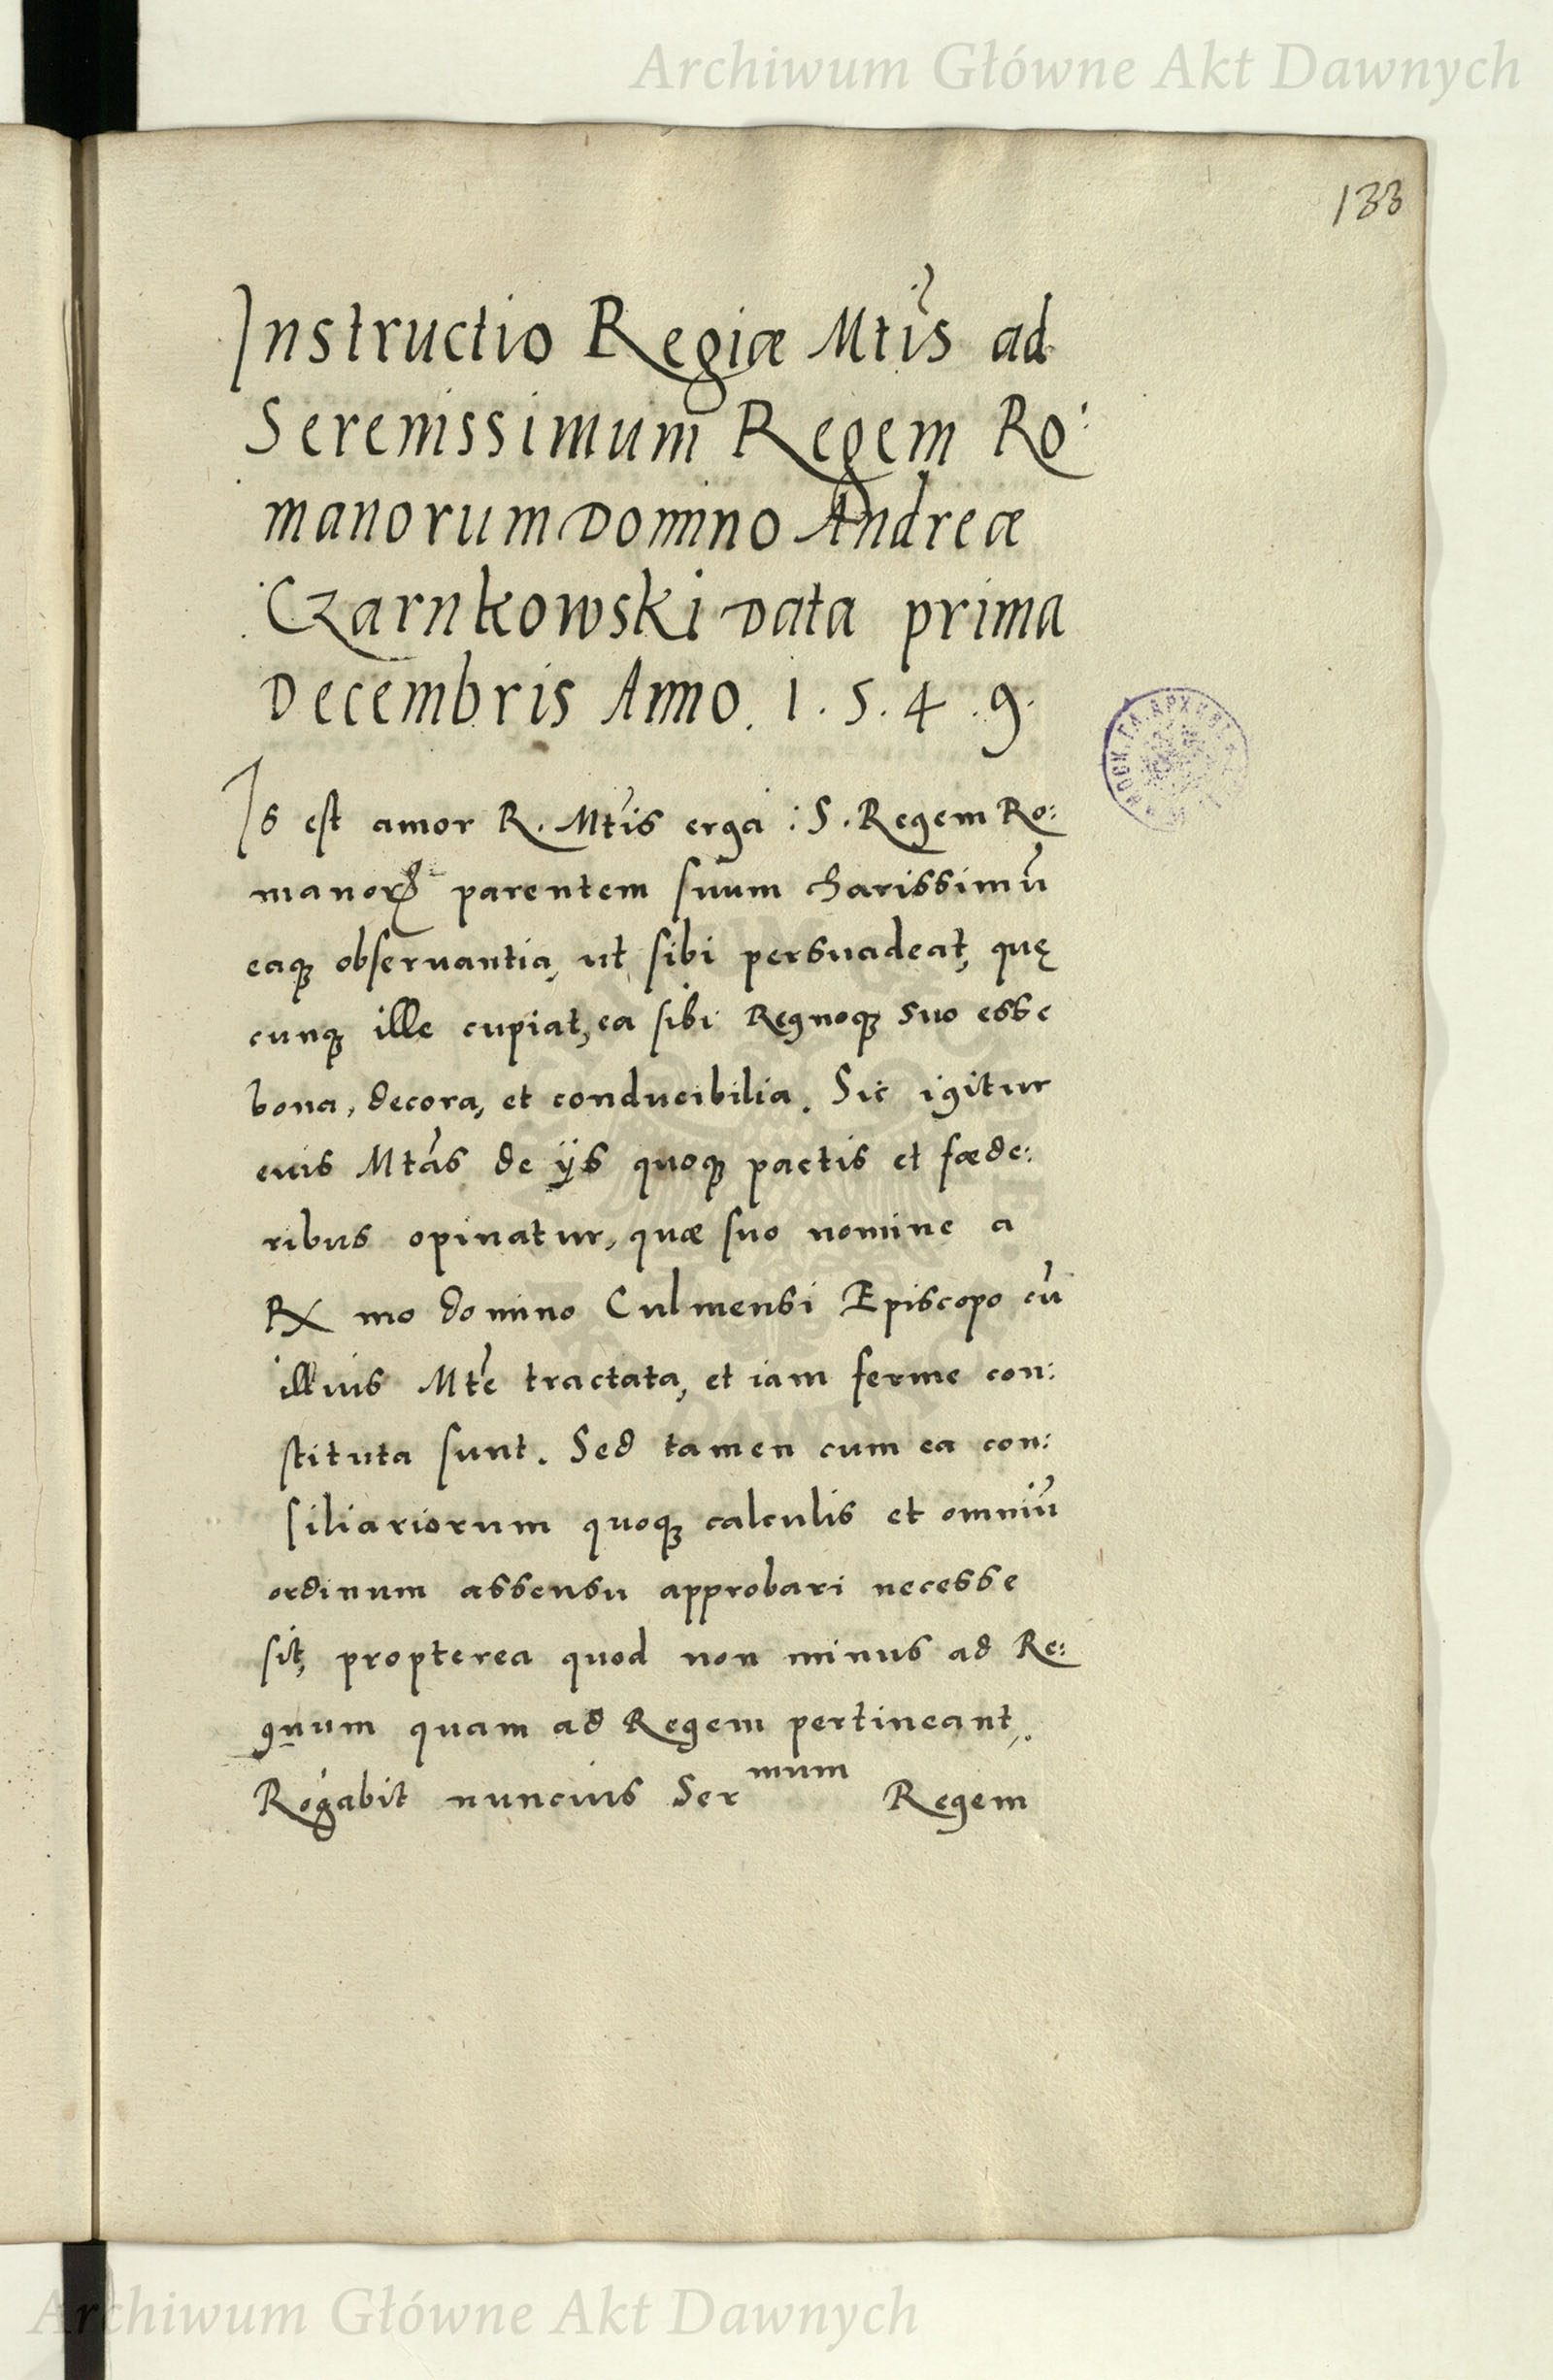 Archiwum Główne Akt Dawnych
133
Instructio Regiæ Mtis ad
Serenissimum Regem Ro:
manorum Domino Andreæ
Czarnkowski Data prima
Decembris Anno. 1.5.4.9.
Is est amor R. Mtis erga S. Regem Ro:
manorꝝ parentem suum charissimū
eaqꝫ obseruantia, ut sibi persuadeat, quę
cunqꝫ ille cupiat, ea sibi Regnoqꝫ suo esse
bona, decora, et conducibilia. Sic igitur
euis Mtas de ijs quoqꝫ pactis et fœde:
ribus opinatur, quæ suo nomine a
Rx mo domino Culmensi Episcopo cū
illius Mte tractata, et iam ferme con:
stituta sunt. Sed tamen cum ea con:
siliariorum quoqꝫ calculis et omniū
ordinum assensu approbari necesse
sit, propterea quod non minus ad Re:
gnum quam ad Regem pertineant,.
Rogabit nuncius Ser mum Regem
Archiwum Główne Akt Dawnych